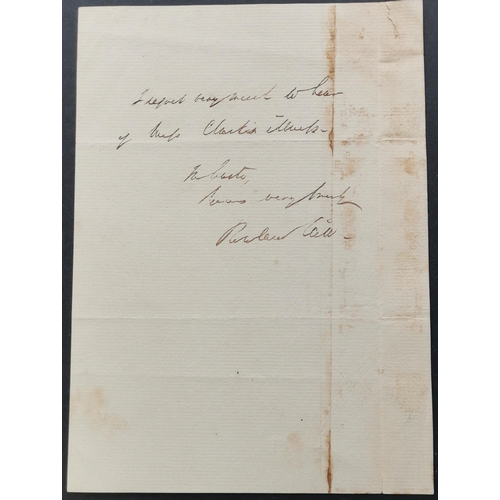 I regret very much to hear
of Miss Clark's illness -
In haste,
Yours very truly
Rowland Hill -